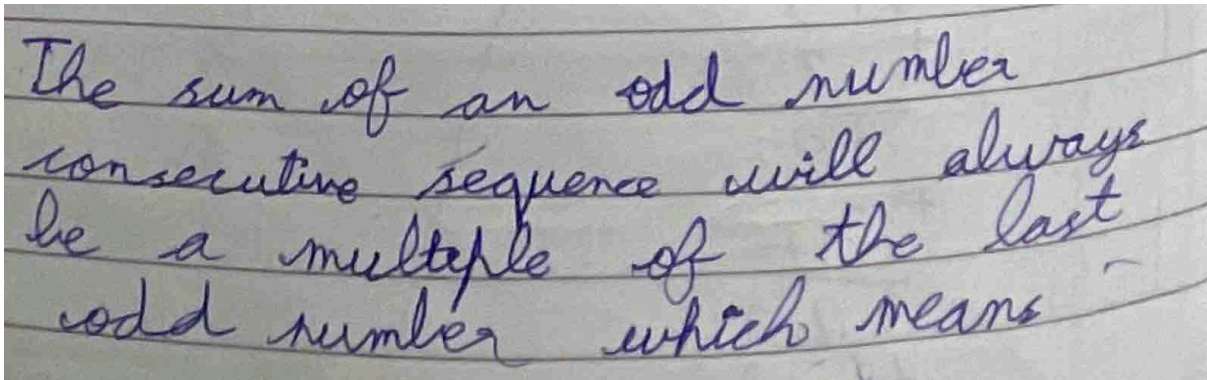 The sum of an odd number
consecutive sequence will always
be a multiple of the last
odd number which means